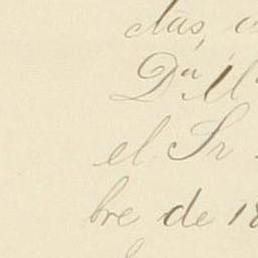 ctas,
Dª M
el Sr
bre de 1